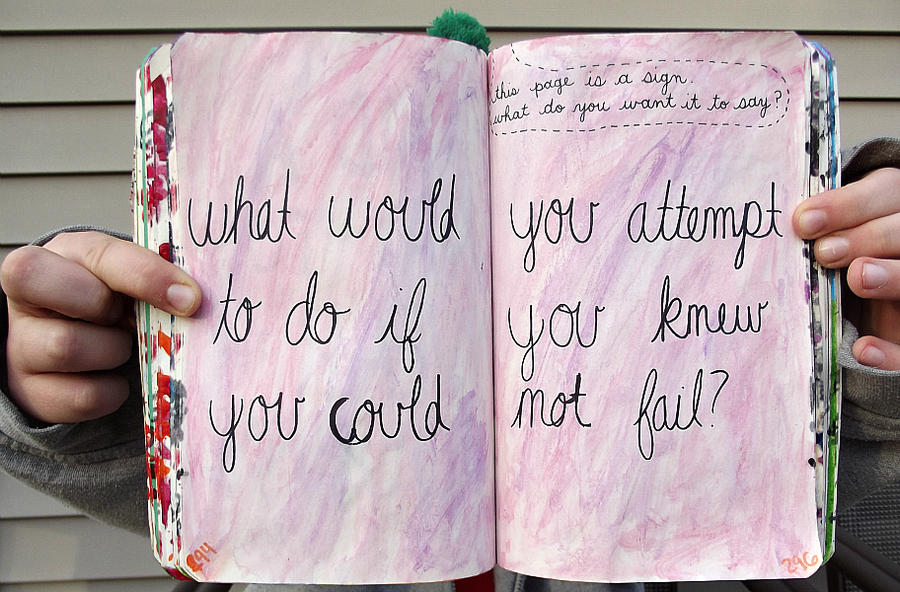 this page is a sign.
what do you want it to say?
what would you attempt
to do if you knew
you could not fail?
296